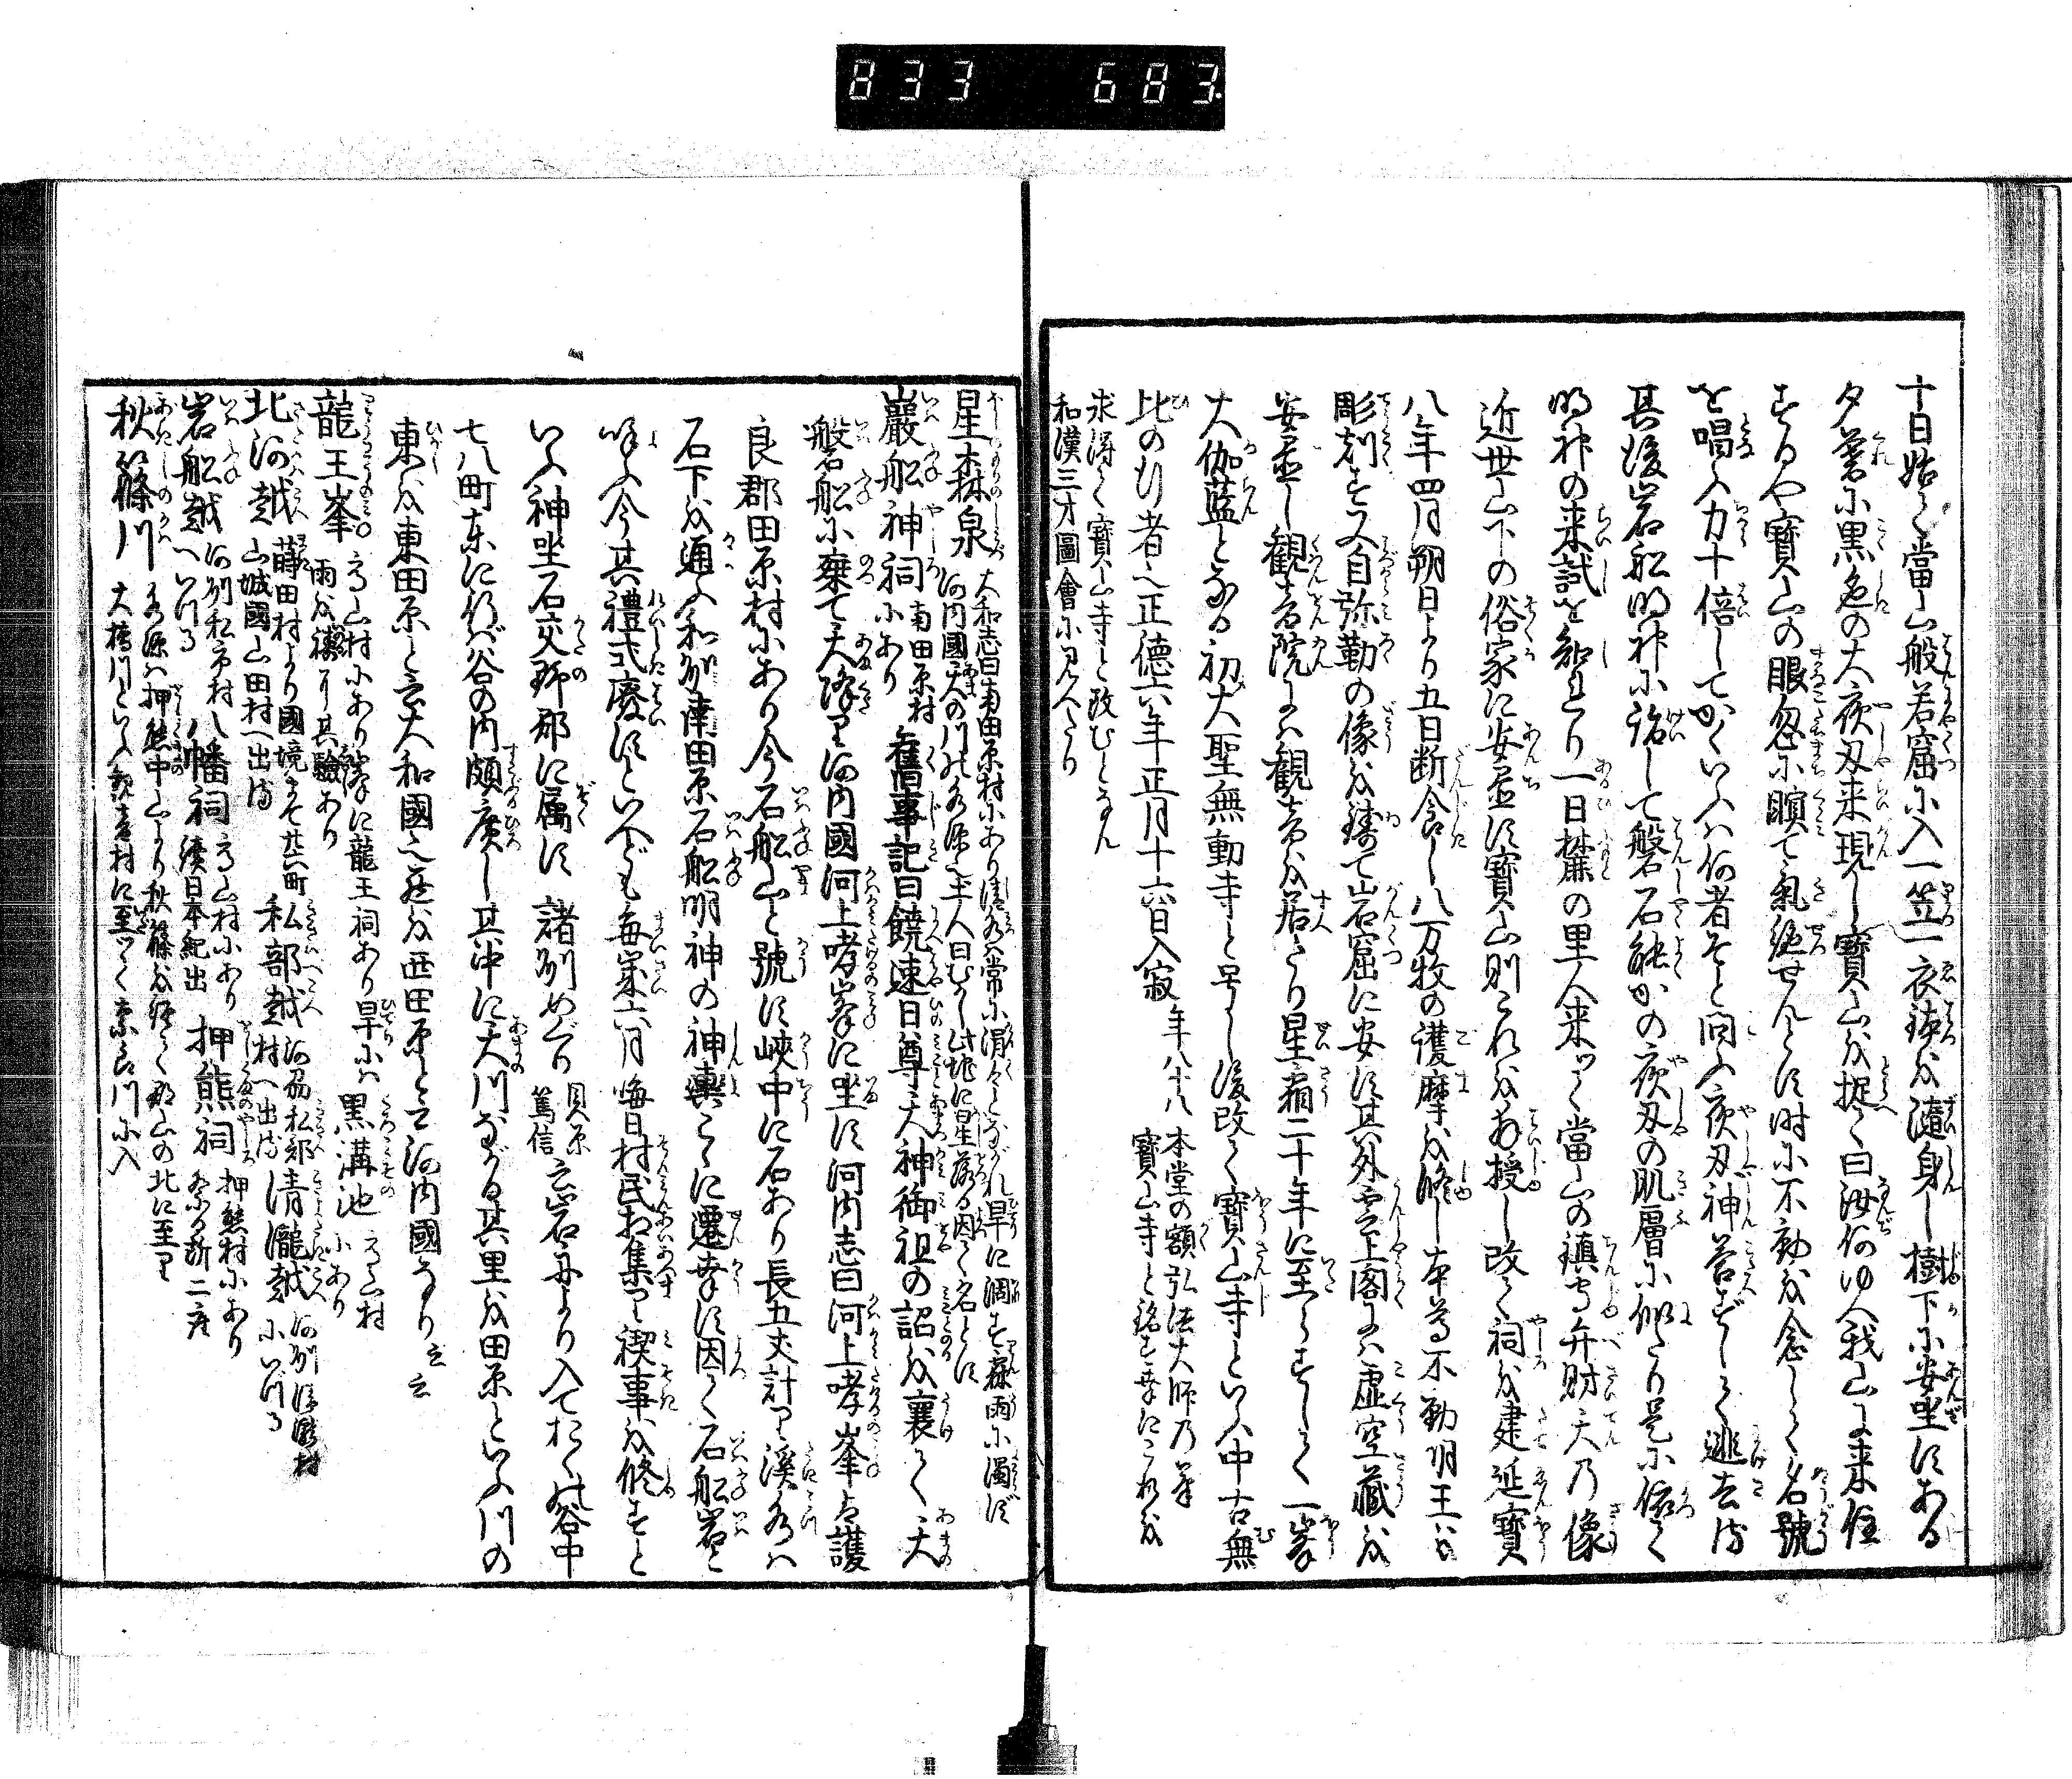 833 683
十日始て當山般若窟に入一笠一衣鉢を隨身し樹下に安坐すある
夕暮に黒色の大夜刄来現し寶山を捉へて曰汝何ゆへ我山に来住
するや寶山の眼忽に瞚て氣絶せんとす時に不動を念して名號
を唱ふ力十倍してかくいふは何者そと問ふ夜刄神答ずして逃去ぬ
其後岩船明神に詣して磐石能かの夜刄の肌層に似たり是に依て
明神の来試を知れり一日梺の里人来つて當山の鎮守弁財天乃像
近世山下の俗家に安置す寶山則これをお授し改て祠を建延寶
八年四月朔日より五日断食し八万牧の護摩を修し本尊不動明王は
彫刻す又自弥勒の像を鋳て岩窟に安す其外雲上閣には虚空蔵を
安置し観音院には観音を居たり星霜二十年に至らずして一峯
大伽藍となる初大聖無動寺と号し後改て寶山寺といふ中古無
比の行者也正徳六年正月十六日入寂 年八十八
本堂の額弘法大師乃筆
寶山寺と銘す幸にこれを
求得て寶山寺と改むとなん
和漢三才圖會に見へたり
星森泉 大和志曰南田原村にあり清水常に涓々とながれ旱に涸す霖雨に濁ず
河内國天の川の水源也土人曰むかし此地に星落る因て名とす
巖船神祠 南田原村にあり 舊事記曰饒速日尊天神御祖の詔を襄て天
磐船に乗て天降り河内國河上哮峯に坐す河内志曰河上哮峯は護
良郡田原村にあり今石船山と號す峽中に石あり長五丈計り溪水は
石下を通ふ和刕南田原石船明神の神輿こゝに遷幸す因て石船岩と
呼ふ今其禮式廢すといへども毎歳六月晦日村民お集り禊事を修すと
いふ神坐石交野郡に属す 諸刕めぐり 貝原篤信 云岩舟より入ておくの谷中
七八町東に行ば谷の内頗廣し其中に天川ながる其里を田原といふ川の
東を東田原と云大和國也西を西田原と云河内國なり云云
龍王峯 高山村にあり峯に龍王祠あり旱には
雨を禱り其驗あり 黒溝池 高山村にあり
北河越 蒔田村より國境まで廿一町
山城國山田村へ出ぬ 私部越 河刕私部村へ出ぬ 清瀧越 河刕清瀧村にいづる
岩船越 河刕私市村へいづる 八幡祠 高山村にあり
續日本紀出 押熊祠 押熊村にあり
祭る所二座
秋篠川 水源は押熊中山より秋篠を経て郡山の北に至り
大橋川といふ観音村に至つて奈良川に入